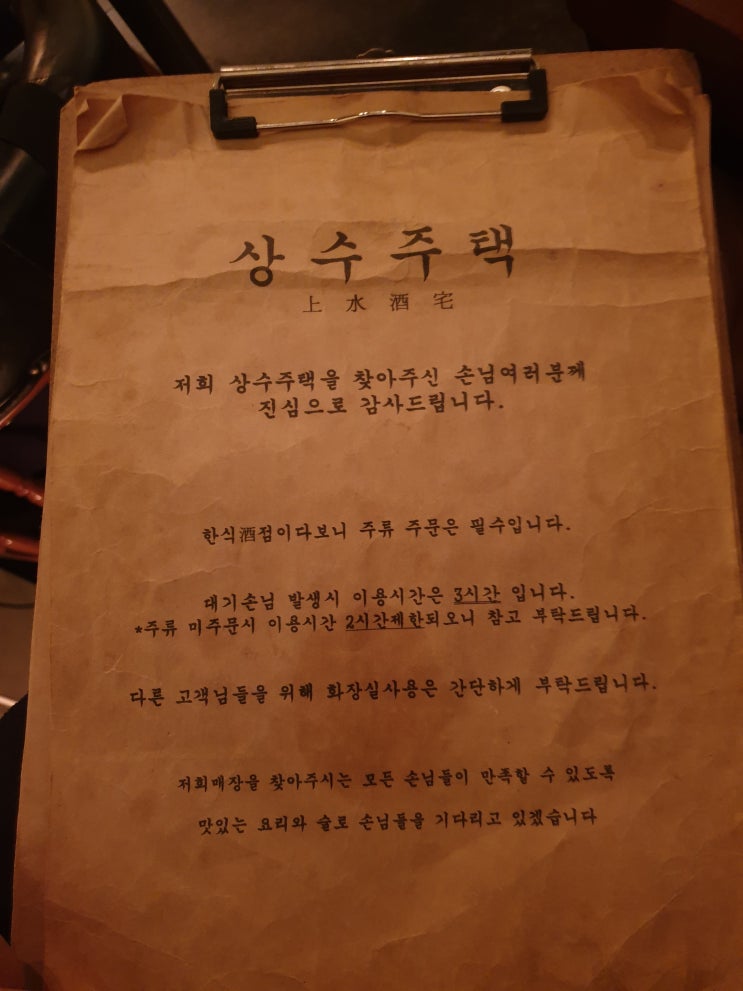 상수주택
上水酒宅
저희 상수주택을 찾아주신 손님여러분께
진심으로 감사드립니다.
한식酒점이다보니 주류 주문은 필수입니다.
대기손님 발생시 이용시간은 3시간 입니다.
*주류 미주문시 이용시간 2시간제한되오니 참고 부탁드립니다.
다른 고객님들을 위해 화장실사용은 간단하게 부탁드립니다.
저희매장을 찾아주시는 모든 손님들이 만족할 수 있도록
맛있는 요리와 술로 손님들을 기다리고 있겠습니다